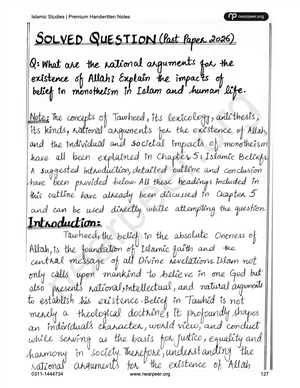 Islamic Studies | Premium Handwritten Notes
www.nearpeer.org
SOLVED QUESTION (Past Paper 2026)
Q: What are the rational arguments for the
existence of Allah? Explain the impacts of
belief in monotheism in Islam and human life.
Note: The concepts of Tawheed, its lexicology, antithesis,
its kinds, rational arguments for the existence of Allah,
and the individual and societal impacts of monotheism
have all been explained in Chapter 5: Islamic Beliefs.
A suggested introduction, detailed outline and conclusion
have been provided below. All these headings included in
this outline have already been discussed in Chapter 5
and can be used directly while attempting the question.
Introduction:
Tawheed, the belief in the absolute Oneness of
Allah, is the foundation of Islamic faith and the
central message of all Divine revelations. Islam not
only calls upon mankind to believe in one God but
also presents rational, intellectual, and natural arguments
to establish his existence. Belief in Tawhid is not
merely a theological doctrine; it profoundly shapes
an individual's character, world view, and conduct
while serving as the basis for justice, equality and
harmony in society. Therefore, understanding the
rational arguments for the existence of Allah
0311-1444734
www.nearpeer.org
127